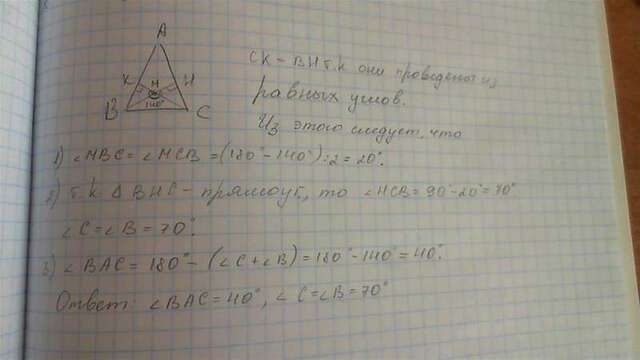 A
K
M
H
140°
B
C
CK = BH т.к они проведены из
равных углов.
Из этого следует, что
1) ∠MBC = ∠MCB = (180° - 140°) : 2 = 20°.
2) т.к Δ BHC - прямоуг., то ∠HCB = 90° - 20° = 70°
∠C = ∠B = 70°.
3) ∠BAC = 180° - (∠C + ∠B) = 180° - 140° = 40°.
Ответ: ∠BAC = 40°, ∠C = ∠B = 70°